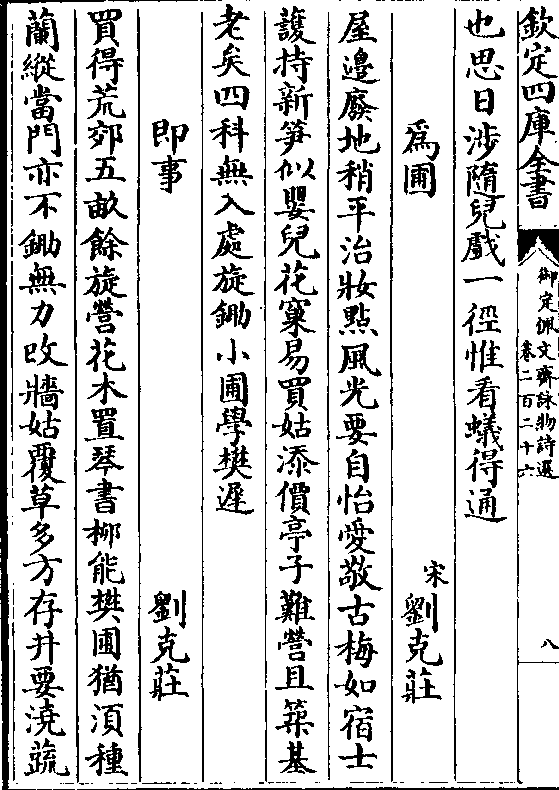 欽定四庫全書
御定佩文齋詠物詩選
卷二百二十六
八
也思日涉隨兒戲一徑惟看蟻得通
爲圃
宋劉克莊
屋邊廢地稍平治妝點風光要自怡愛敬古梅如宿士
護持新笋似嬰兒花窠易買姑添價亭子難營且築基
老矣四科無入處旋鋤小圃學樊遲
即事
劉克莊
買得荒郊五畝餘旋營花木置琴書柳能樊圃猶須種
蘭縱當門亦不鋤無力改牆姑覆草多方存井要澆蔬